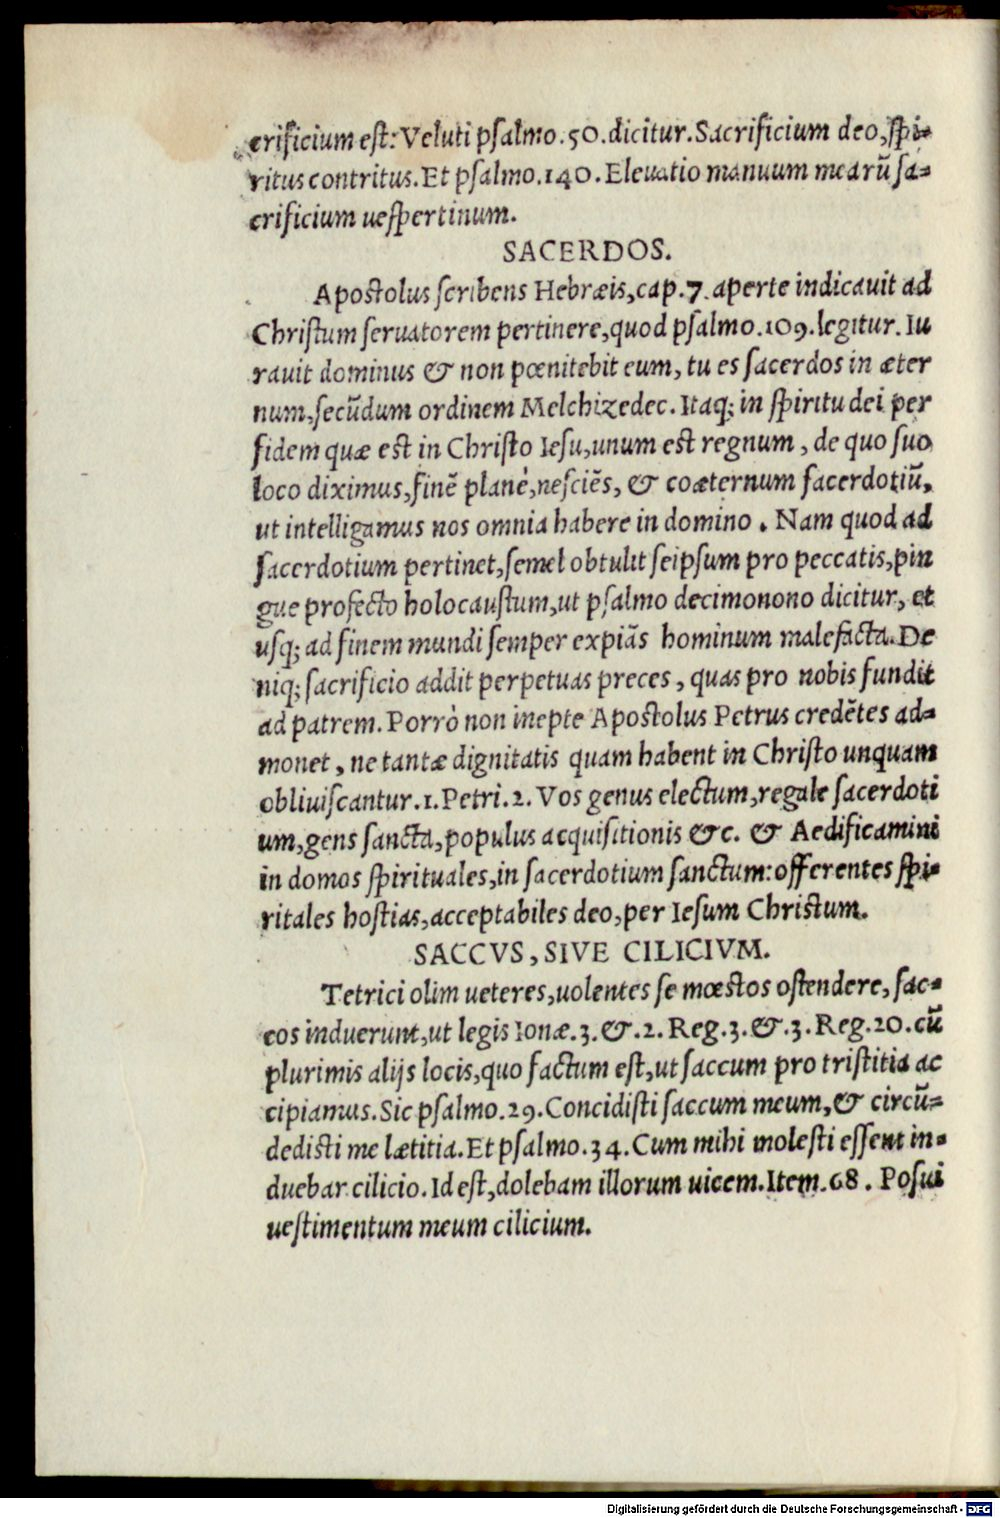 crificium est: Veluti psalmo.50.dicitur.Sacrificium deo,spi-
ritus contritus.Et psalmo.140.Eleuatio manuum mearū sa-
crificium uespertinum.
SACERDOS.
Apostolus scribens Hebræis,cap.7.aperte indicauit ad
Christum seruatorem pertinere,quod psalmo.109.legitur.Iu
rauit dominus & non pœnitebit eum, tu es sacerdos in æter
num,secūdum ordinem Melchizedec. Itaq; in spiritu dei per
fidem quæ est in Christo Iesu,unum est regnum, de quo suo
loco diximus,finē planè,nesciēs, & coæternum sacerdotiū,
ut intelligamus nos omnia habere in domino. Nam quod ad
sacerdotium pertinet,semel obtulit seipsum pro peccatis,pin
gue profecto holocaustum,ut psalmo decimonono dicitur, et
usq; ad finem mundi semper expiās hominum malefacta.De
niq; sacrificio addit perpetuas preces, quas pro nobis fundit
ad patrem.Porrò non inepte Apostolus Petrus credētes ad-
monet, ne tantæ dignitatis quam habent in Christo unquam
obliuiscantur.1.Petri.2. Vos genus electum,regale sacerdoti
um,gens sancta,populus acquisitionis &c. & Aedificamini
in domos spirituales,in sacerdotium sanctum:offerentes spi-
ritales hostias,acceptabiles deo,per Iesum Christum.
SACCVS, SIVE CILICIVM.
Tetrici olim ueteres,uolentes se mœstos ostendere, sac-
cos induerunt,ut legis Ionæ.3.&.2. Reg.3.&.3. Reg.20.cū
plurimis alijs locis,quo factum est,ut saccum pro tristitia ac
cipiamus.Sic psalmo.29.Concidisti saccum meum,& circū-
dedisti me lætitia.Et psalmo.34.Cum mihi molesti essent in-
duebar cilicio.Id est,dolebam illorum uicem.Item.68. Posui
uestimentum meum cilicium.
Digitalisierung gefördert durch die Deutsche Forschungsgemeinschaft - DFG